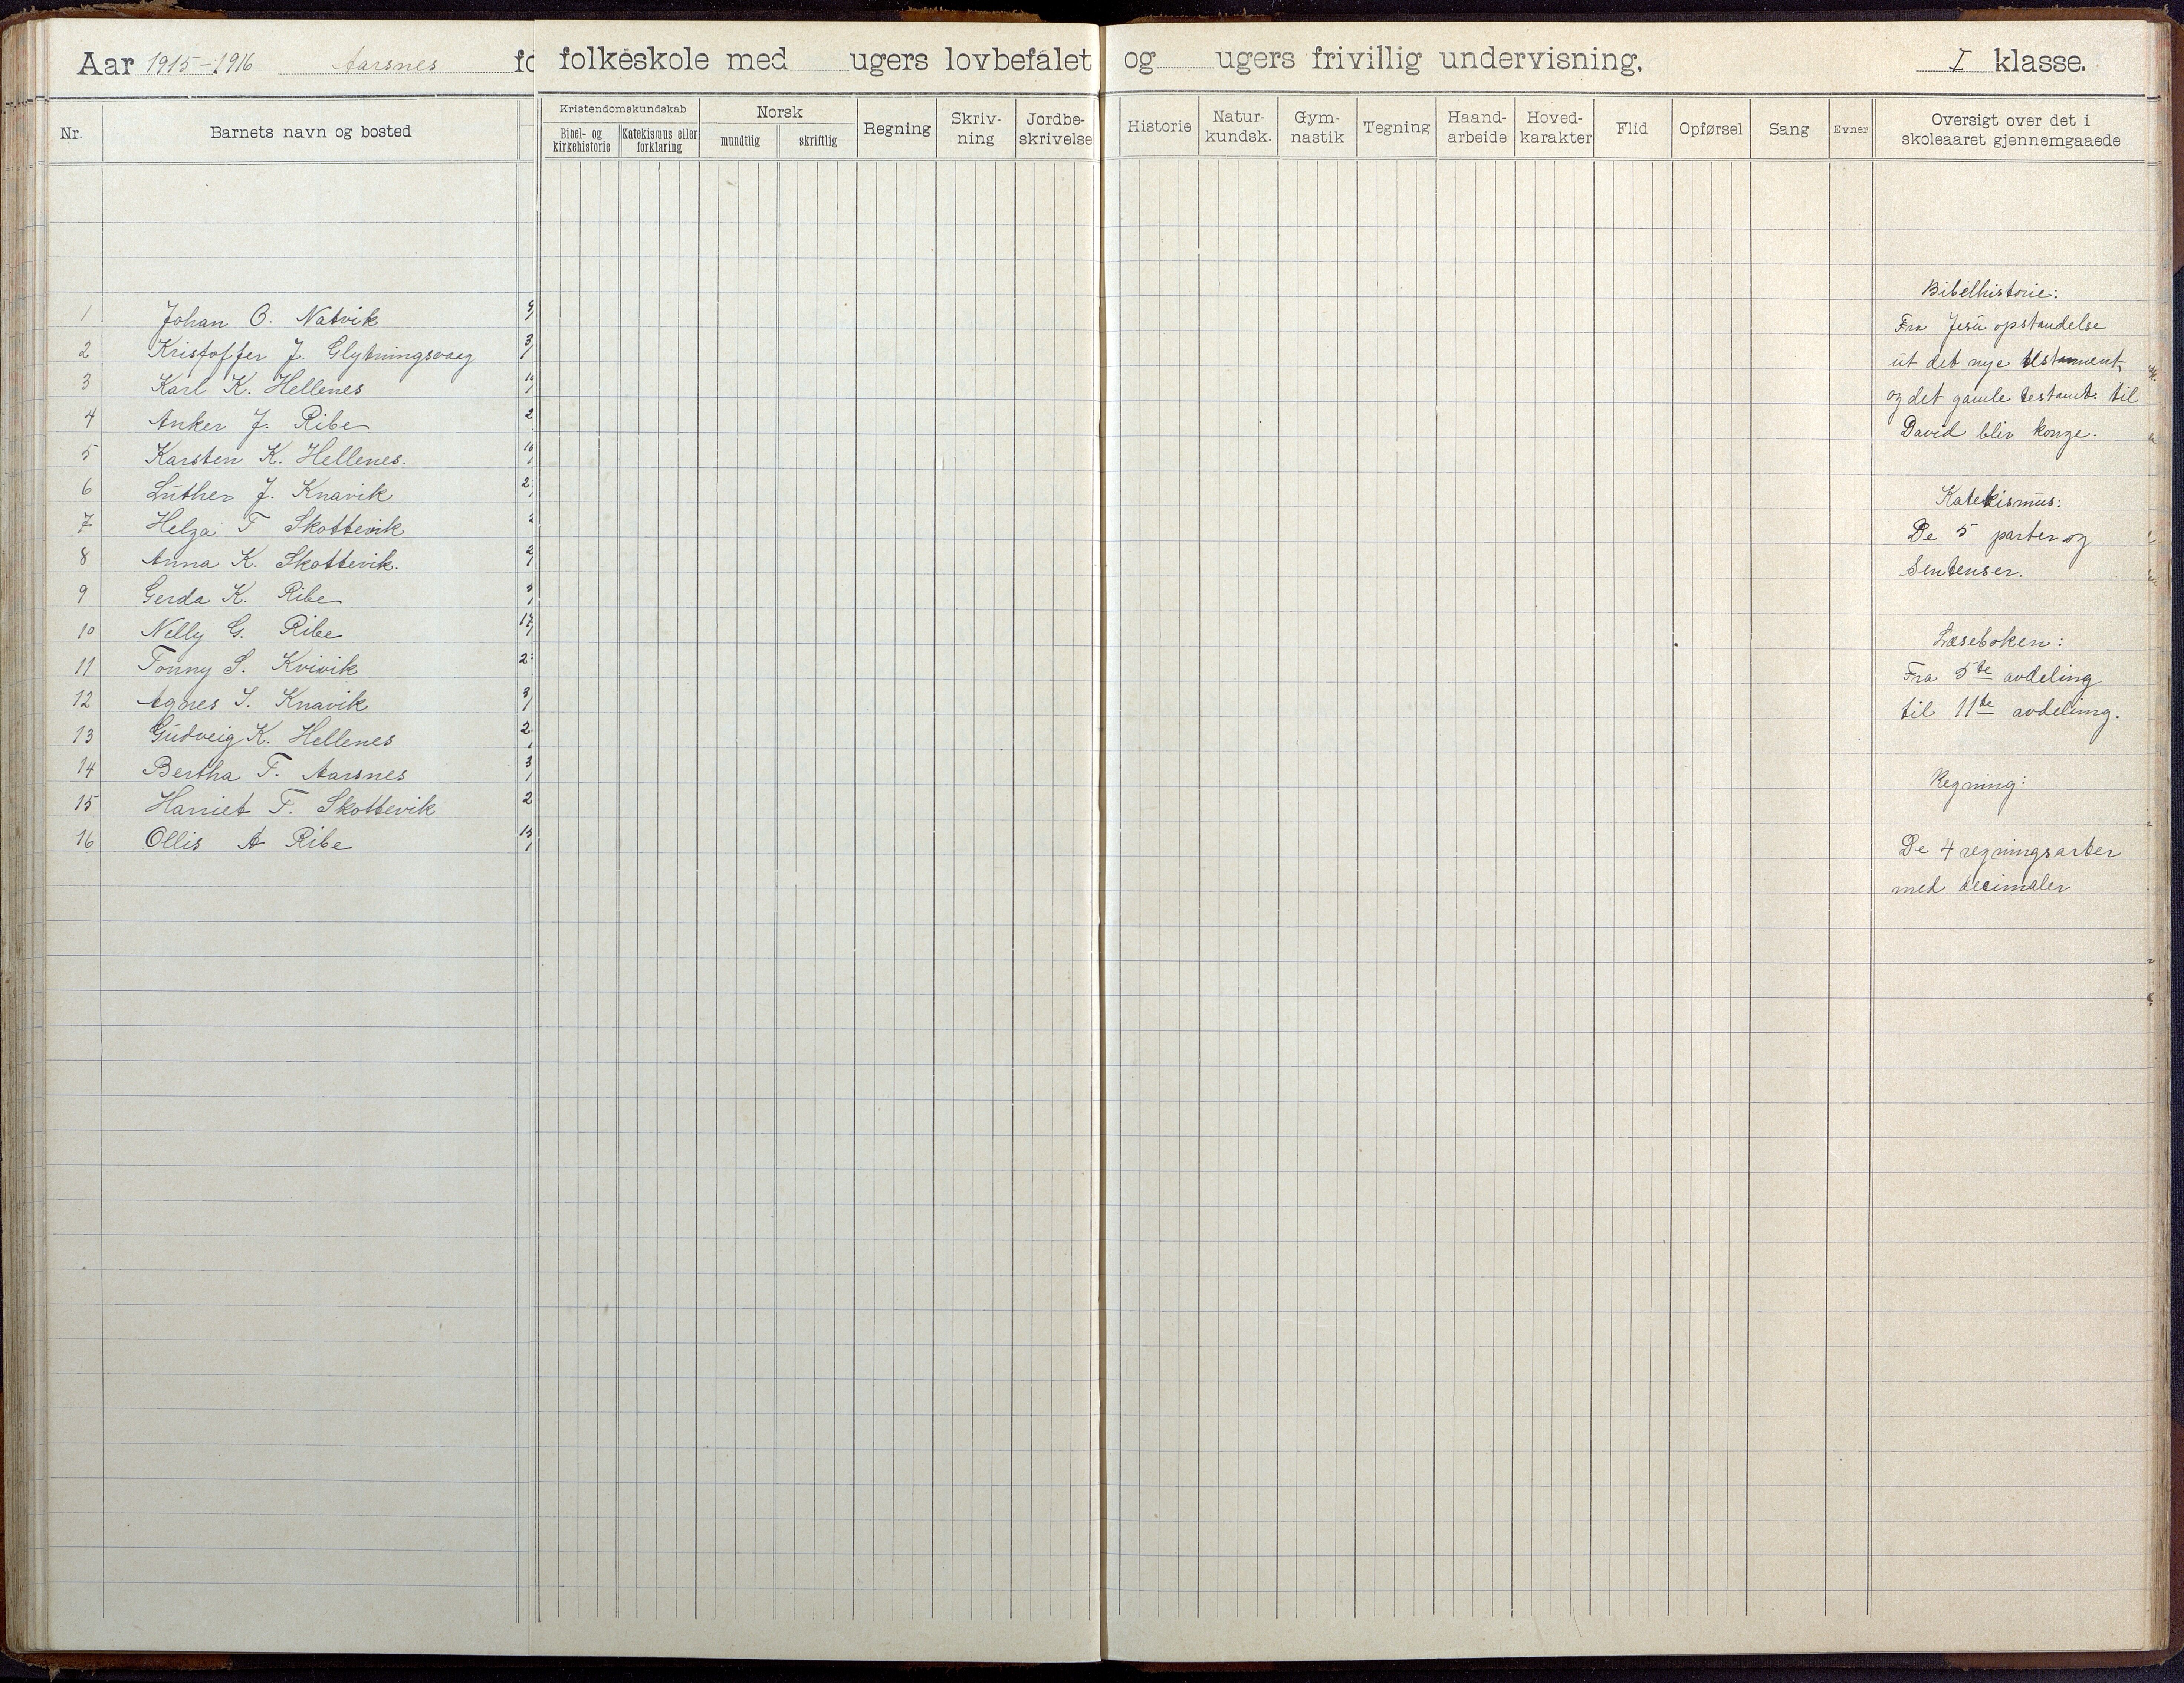 Aar 1915-1916 Aarsnes fo folkeskole med ugers lovbefalet og ugers frivillig undervisning. I klasse.
Nr. Barnets navn og bosted
Kristendomskundskab
Bibel- og kirkehistorie
Katekismus eller forklaring
Norsk
mundtlig
skriftlig
Regning
Skriv-
ning
Jordbe-
skrivelse
Historie
Natur-
kundsk.
Gym-
nastik
Tegning
Haand-
arbeide
Hoved-
karakter
Flid
Opførsel
Sang
Evner
Oversigt over det i
skoleaaret gjennemgaaede
1 Johan O. Natvik
2 Kristoffer J. Glytningsvaag
3 Karl K. Hellenes
4 Anker J. Ribe
5 Karsten K. Hellenes.
6 Luther J. Knavik
7 Helga T Skottevik
8 Anna K. Skottevik.
9 Gerda K. Ribe
10 Nelly G. Ribe
11 Tonny S. Kvivik
12 Agnes S. Knavik
13 Gudveig K. Hellenes
14 Bertha T. Aarsnes
15 Harriet T. Skottevik
16 Ollis A Ribe
Bibelhistorie:
Fra Jesu opstandelse
ut det nye testament,
og det gamle testamt. til
David blir konge.
Katekismus:
De 5 parter og
Sentenser.
Læseboken:
Fra 5te avdeling
til 11te avdeling.
Regning:
De 4 regningsarter
med decimaler